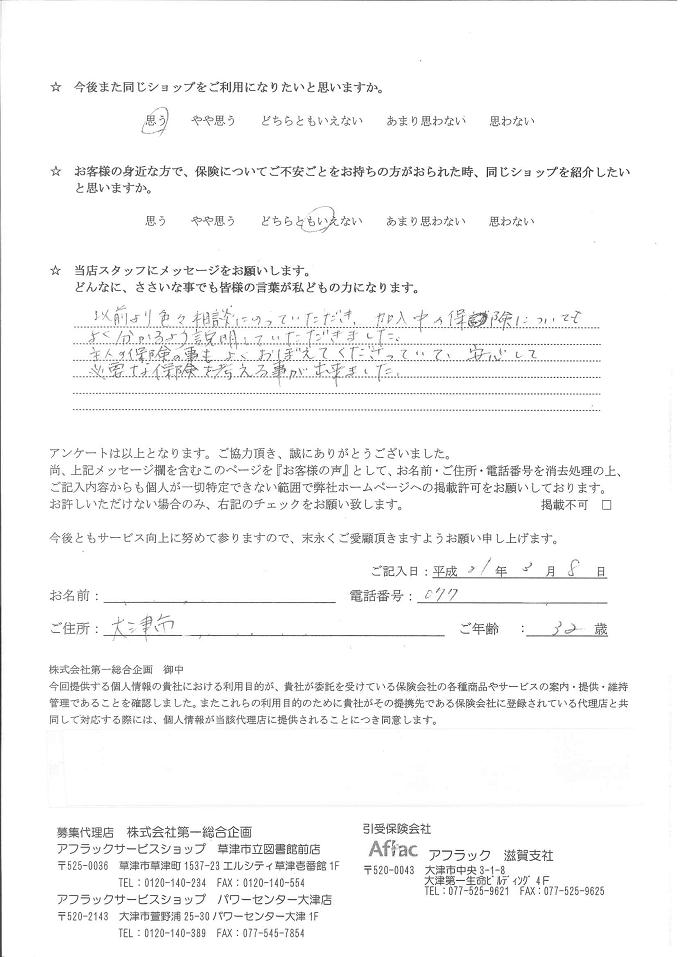 ☆ 今後また同じショップをご利用になりたいと思いますか。
思う やや思う どちらともいえない あまり思わない 思わない
☆ お客様の身近な方で、保険についてご不安ごとをお持ちの方がおられた時、同じショップを紹介したい
と思いますか。
思う やや思う どちらともいえない あまり思わない 思わない
☆ 当店スタッフにメッセージをお願いします。
どんなに、ささいな事でも皆様の言葉が私どもの力になります。
以前より色々相談にのっていただき、加入中の保険についても
よく分かるよう説明していただきました。
主人の保険の事もよくおぼえてくださっていて、安心して
必要な保険を考える事が出来ました。
アンケートは以上となります。ご協力頂き、誠にありがとうございました。
尚、上記メッセージ欄を含むこのページを『お客様の声』として、お名前・ご住所・電話番号を消去処理の上、
ご記入内容からも個人が一切特定できない範囲で弊社ホームページへの掲載許可をお願いしております。
お許しいただけない場合のみ、右記のチェックをお願い致します。 掲載不可 □
今後ともサービス向上に努めて参りますので、末永くご愛顧頂きますようお願い申し上げます。
ご記入日:平成 21 年 3 月 8 日
お名前: 電話番号: 077
ご住所: 大津市 ご年齢 : 32 歳
株式会社第一総合企画 御中
今回提供する個人情報の貴社における利用目的が、貴社が委託を受けている保険会社の各種商品やサービスの案内・提供・維持
管理であることを確認しました。またこれらの利用目的のために貴社がその提携先である保険会社に登録されている代理店と共
同して対応する際には、個人情報が当該代理店に提供されることにつき同意します。
募集代理店 株式会社第一総合企画
アフラックサービスショップ 草津市立図書館前店
〒525-0036 草津市草津町 1537-23 エルシティ草津壱番館 1F
TEL:0120-140-234 FAX:0120-140-554
アフラックサービスショップ パワーセンター大津店
〒520-2143 大津市萱野浦 25-30 パワーセンター大津 1F
TEL:0120-140-389 FAX:077-545-7854
引受保険会社
Aflac アフラック 滋賀支社
〒520-0043 大津市中央 3-1-8
大津第一生命ビルディング 4F
TEL:077-525-9621 FAX:077-525-9625